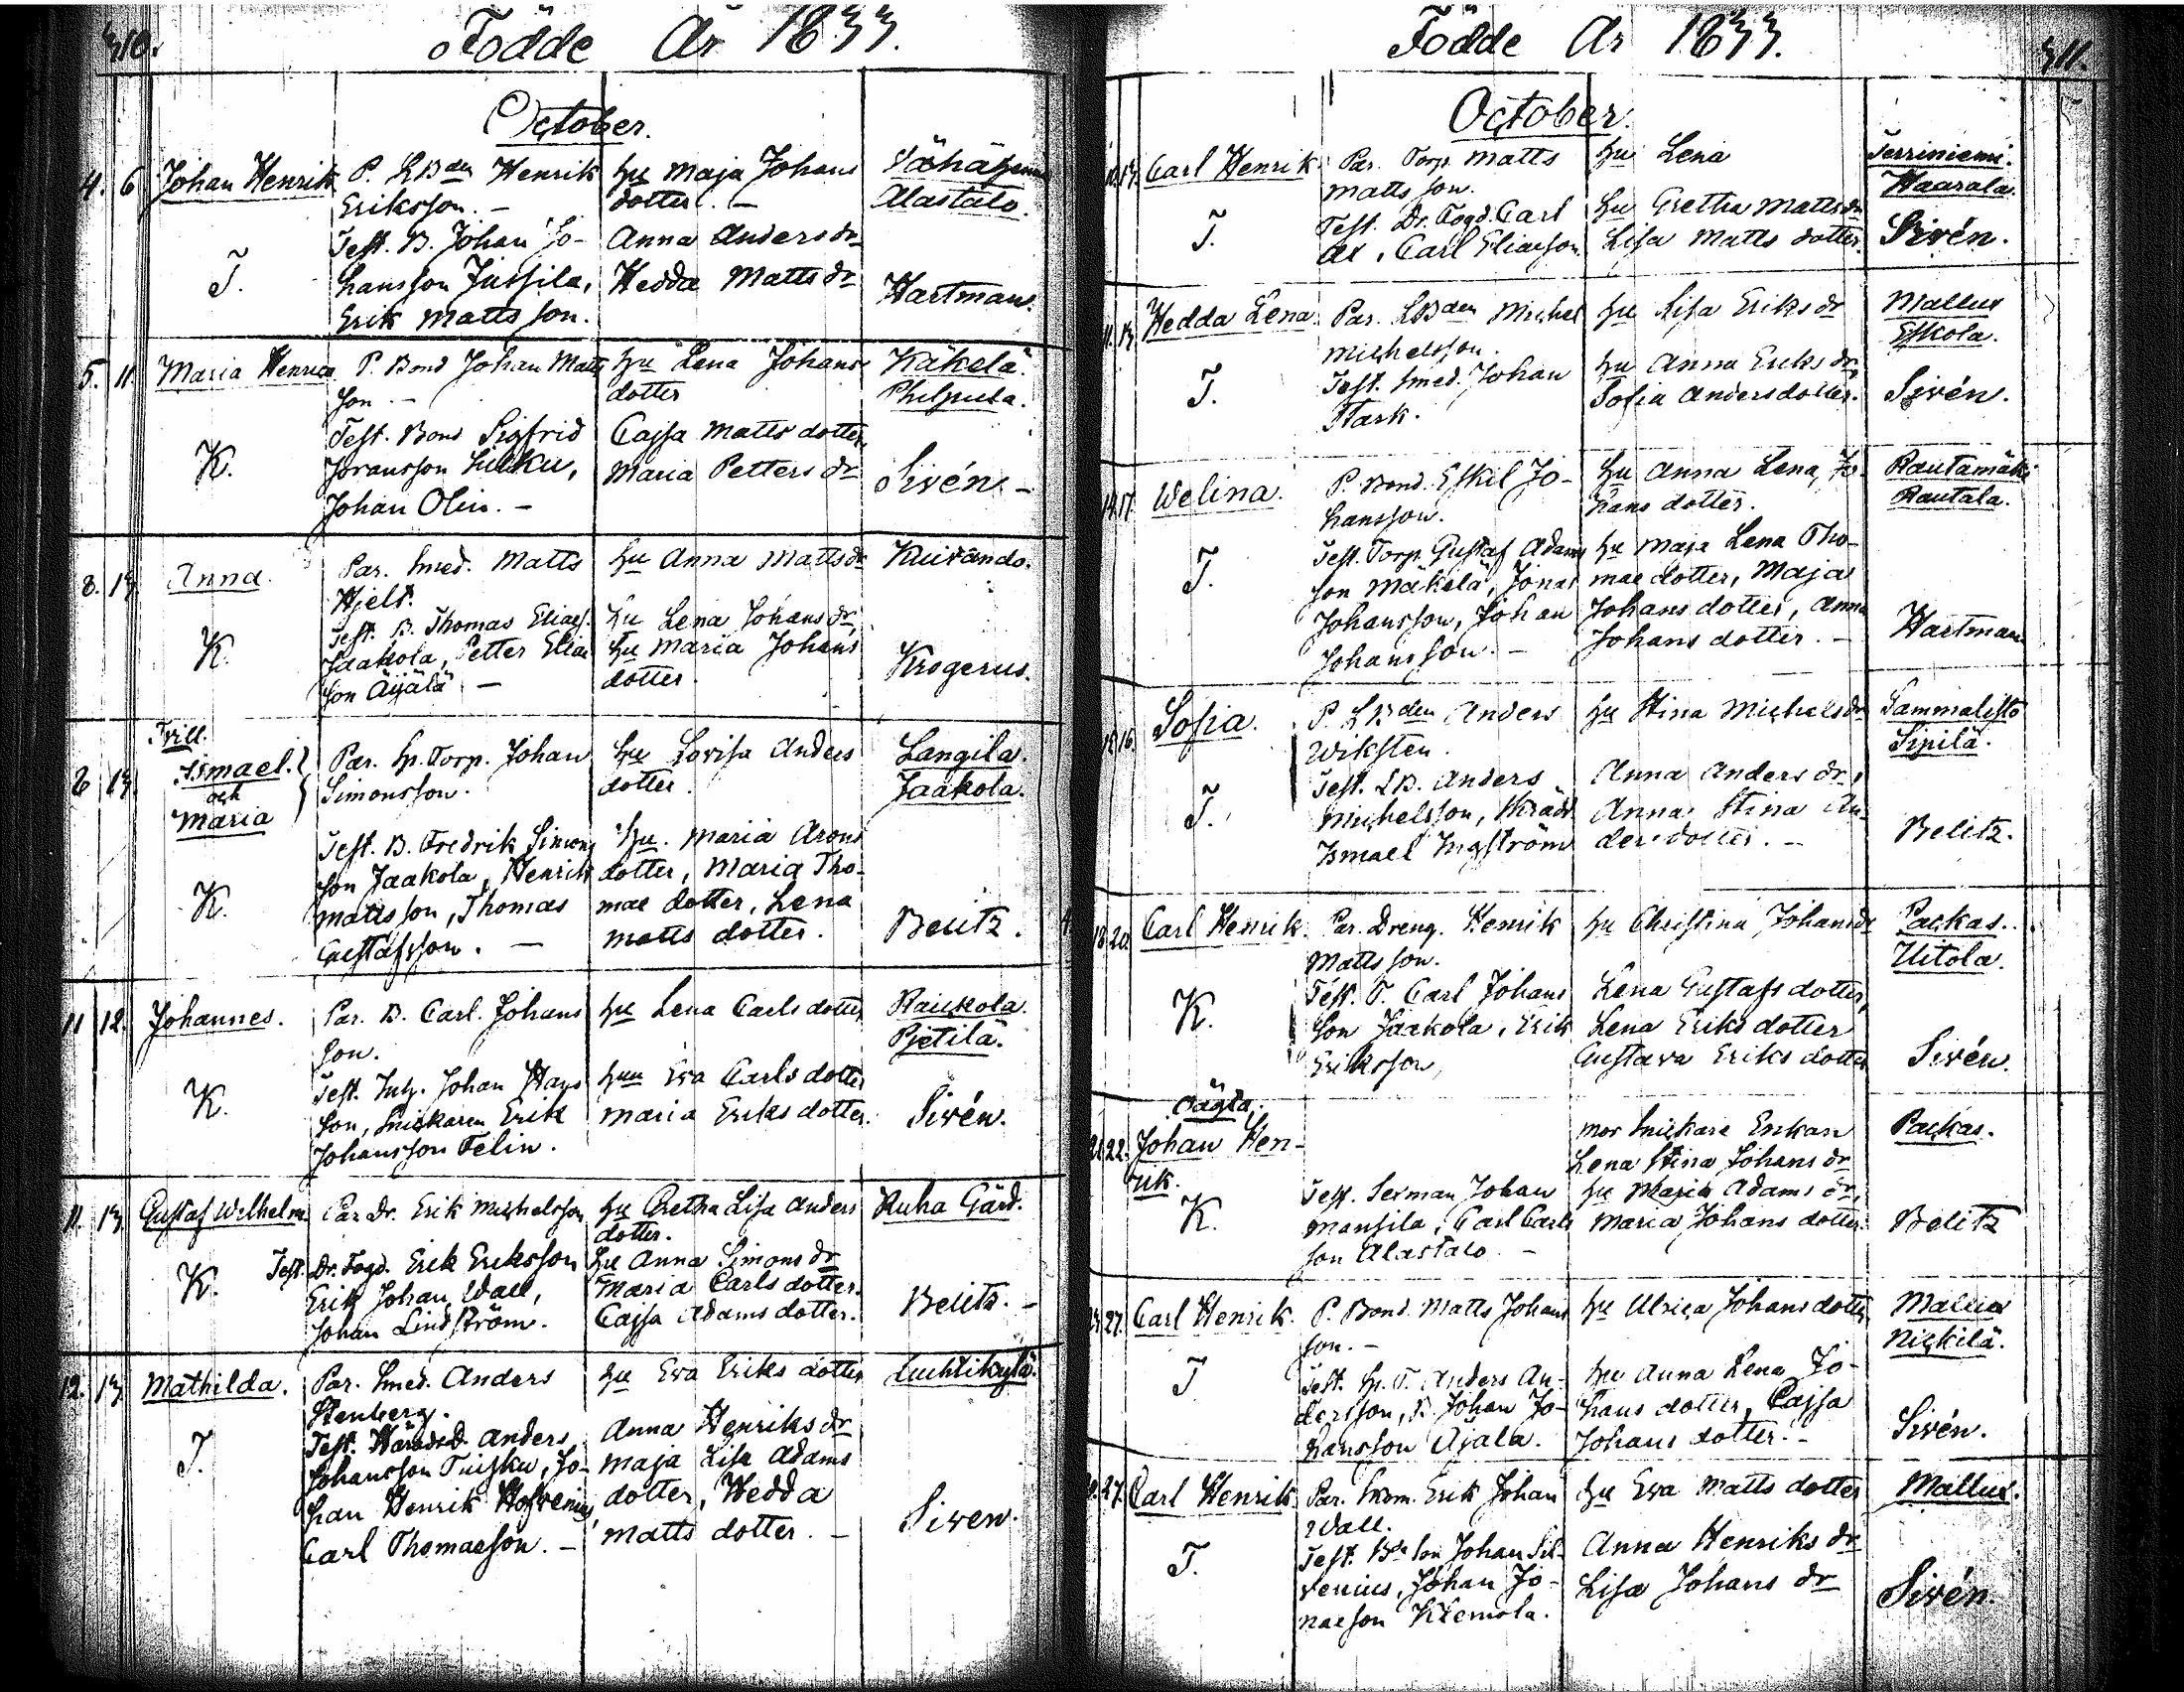 310.
Födde År 1833.
October.
4. 6 Johan Henrik P. LBden Henrik hu Maja Johans
Eriksson. – dotter. – Alastalo.
Test. B. Johan Jo- Anna Anders dr
T. hansson Jussila, Hedda Matts dr Hartman.
Erik Matts son.
5. 11. Maria Henrica P. Bond Johan Matts hu Lena Johans Käkelä.
son. – dotter Philpula.
Test. Bond Sigfrid Cajsa Matts dotter,
K. Joransson Maria Petters dr Sivén –
Johan Olin. –
8. 13. Anna. Par. Smed. Matts hu Anna Mattsdr
Hjelt.
Test. B. Thomas Eliass. hu Lena Johans dr,
K. Jaakola, Petter Elias hu Maria Johans Krogerus.
son Äijälä – dotter
Tvill.
8 13. Ismael. Par. Sp. Torp. Johan hu Lovisa Anders Langila.
och Simonsson. dotter. Jaakola.
Maria
Test. B. Fredrik Simons hu. Maria Arons
son Jaakola, Henrik dotter, Maria Tho-
K. Mattsson, Thomas mae dotter, Lena
Gustafsson. – Matts dotter. Belitz.
11 12. Johannes. Par. B. Carl. Johans hu Lena Carls dotter Raukola.
son. Pietilä.
Test. Inh. Johan Hans hun Eva Carls dotter
K. son, Snickaren Erik Maria Eriks dotter. Sivén.
Johansson Felin.
11. 13 Gustaf Wilhelm Par Dr. Erik Michelsson hu Gretha Lisa Anders Ruha Gård.
dotter.
Test. Dr. Fogd. Erik Eriksson hu Anna Simons dr
K. Erik Johan Wall, Maria Carls dotter.
Johan Lindström. Cajsa Adams dotter. Belitz. –
12. 13 Mathilda. Par. Smed. Anders hu Eva Eriks dotter Luchtikylä.
Stenberg.
Test. Härads D. Anders Anna Henriks dr
T. Johansson Tuisku, Jo- Maja Lisa Adams
han Henrik Hofrenius, dotter, Hedda
Carl Thomasson. – Matts dotter. – Siven.
311.
Födde År 1833.
October.
10. 13. Carl Henrik Par. Torp. Matts hu Lena Terriniemi.
Matts son. Haarala.
Test. Dr. Fogd. Carl hu Gretha Mattsdr
T. Carl Eliasson. Lisa Matts dotter. Sivén.
11. 13. Hedda Lena. Par. LBden Michel hu Lisa Eriks dr Mallus
Michelsson. Eskola.
Test. Smed. Johan hu Anna Eriks dr,
T. Stark. Sofia Andersdotter. Sivén.
14. 17 Welina. P. Bond. Eskil Jo- hu Anna Lena Jo- Rautamäki
hansson. hans dotter. Rautala.
Test. Torp. Gustaf Adams hu Maja Lena Tho-
T. son Mäkelä, Jonas mae dotter, Maja
Johansson, Johan Johans dotter, Anna
Johansson. – Johans dotter. – Hartman
16. Sofia. P. LBden Anders hu Stina Michels dr Sammalisto
Wiksten. Sipilä.
Test. LB. Anders Anna Anders dr,
T. Michelsson, Skräd. Anna Stina An-
Ismael Ingström ders dotter. – Belitz.
18. 20. Carl Henrik. Par. Dreng. Henrik hu Christina Johans dr Packas.
Matts son. Uitola.
Test. T. Carl Johans Lena Gustafs dotter,
K. son Jaakola, Erik Lena Eriks dotter
Eriksson, Gustava Eriks dotter Sivén.
Oägta.
21. 22. Johan Hen- mor Snickare Enkan Packas.
rik. Lena Stina Johans dr
Test. Sexman Johan hu Maria Adams dr,
K. Mansila, Carl Carls Maria Johans dotter. Belitz
son Alastalo –
27. Carl Henrik. P. Bond. Matts Johans hu Ulrica Johans dotter Mallus
son. – Nickilä.
T Test. Sp. T. Anders An- hu Anna Lena Jo-
dersson, B. Johan Jo- hans dotter, Cajsa
hansson Äjälä. Johans dotter. – Sivén.
27. Carl Henrik Par. Skom. Erik Johan hu Eva Matts dotter Mallus.
Wall.
T. Test. Bde son Johan Sil- Anna Henriks dr
venius, Johan Jo- Lisa Johans dr
nasson Klemola. Sivén.